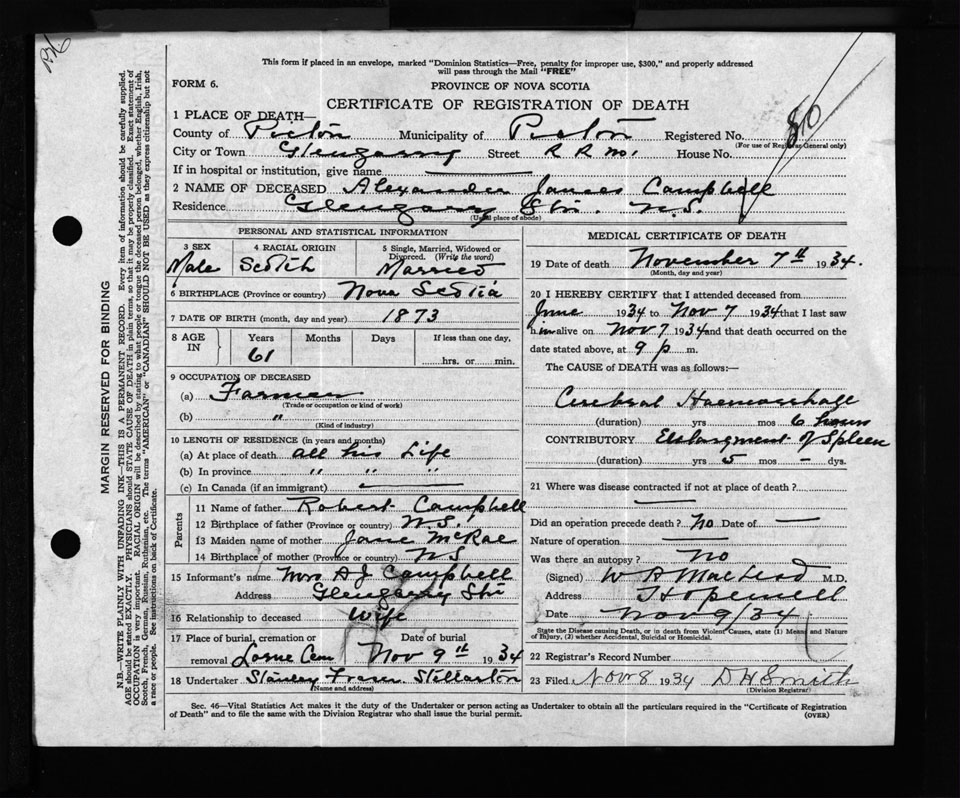 This form if placed in an envelope, marked "Dominion Statistics—Free, penalty for improper use, $300," and properly addressed
will pass through the Mail "FREE"
FORM 6.
PROVINCE OF NOVA SCOTIA
CERTIFICATE OF REGISTRATION OF DEATH
1 PLACE OF DEATH—
County of Pictou Municipality of Pictou Registered No.
(For use of Registrar General only)
City or Town Glengarry Street R R No. House No.
If in hospital or institution, give name
2 NAME OF DECEASED Alexander James Campbell
Residence Glengarry Stn. N.S.
(Usual place of abode)
PERSONAL AND STATISTICAL INFORMATION
3 SEX 4 RACIAL ORIGIN 5 Single, Married, Widowed or
Divorced. (Write the word)
Male Scotch Married
6 BIRTHPLACE (Province or country) Nova Scotia
7 DATE OF BIRTH (month, day and year) 1873
8 AGE IN Years Months Days If less than one day,
61 hrs. or min.
9 OCCUPATION OF DECEASED
(a) Farmer
(Trade or occupation or kind of work)
(b) "
(Kind of industry)
10 LENGTH OF RESIDENCE (in years and months)
(a) At place of death all his Life
(b) In province " " "
(c) In Canada (if an immigrant)
Parents
11 Name of father Robert Campbell
12 Birthplace of father (Province or country) N.S.
13 Maiden name of mother Jane McRae
14 Birthplace of mother (Province or country) NS
15 Informant's name Mrs A J Campbell
Address Glengarry Stn
16 Relationship to deceased Wife
17 Place of burial, cremation or Date of burial
removal Lorne Cem Nov 9th 1934
18 Undertaker Stanley Fraser Stellarton
(Name and address)
MEDICAL CERTIFICATE OF DEATH
19 Date of death November 7th 1934.
(Month, day and year)
20 I HEREBY CERTIFY that I attended deceased from
June 1934 to Nov 7 1934 that I last saw
him alive on Nov 7 1934 and that death occurred on the
date stated above, at 9 p m.
The CAUSE of DEATH was as follows:—
Cerebral Haemorrhage
(duration) yrs mos 6 hours
CONTRIBUTORY Enlargment of Spleen
(duration) yrs 5 mos – dys.
21 Where was disease contracted if not at place of death?
Did an operation precede death? No Date of —
Nature of operation —
Was there an autopsy? No
(Signed) W R MacLeod M.D.
Address Hopewell
Date Nov 9/34
State the Disease causing Death, or in death from Violent Causes, state (1) Means and Nature
of Injury, (2) whether Accidental, Suicidal or Homicidal.
22 Registrar's Record Number
23 Filed Nov 8 1934 D H Smith
(Division Registrar)
Sec. 46—Vital Statistics Act makes it the duty of the Undertaker or person acting as Undertaker to obtain all the particulars required in the "Certificate of Registration
of Death" and to file the same with the Division Registrar who shall issue the burial permit. (OVER)
MARGIN RESERVED FOR BINDING
N.B.—WRITE PLAINLY WITH UNFADING INK—THIS IS A PERMANENT RECORD. Every item of information should be carefully supplied.
AGE should be stated EXACTLY. PHYSICIANS should STATE CAUSE OF DEATH in plain terms, so that it may be properly classified. Exact statement of
OCCUPATION is very important. RACIAL ORIGIN will be described by stating to what people or tongue the deceased person belonged, whether English, Irish,
Scotch, French, German, Russian, Ruthenian, etc. The terms "AMERICAN" or "CANADIAN" SHOULD NOT BE USED as they express citizenship but not
a race or people. See instructions on back of Certificate.